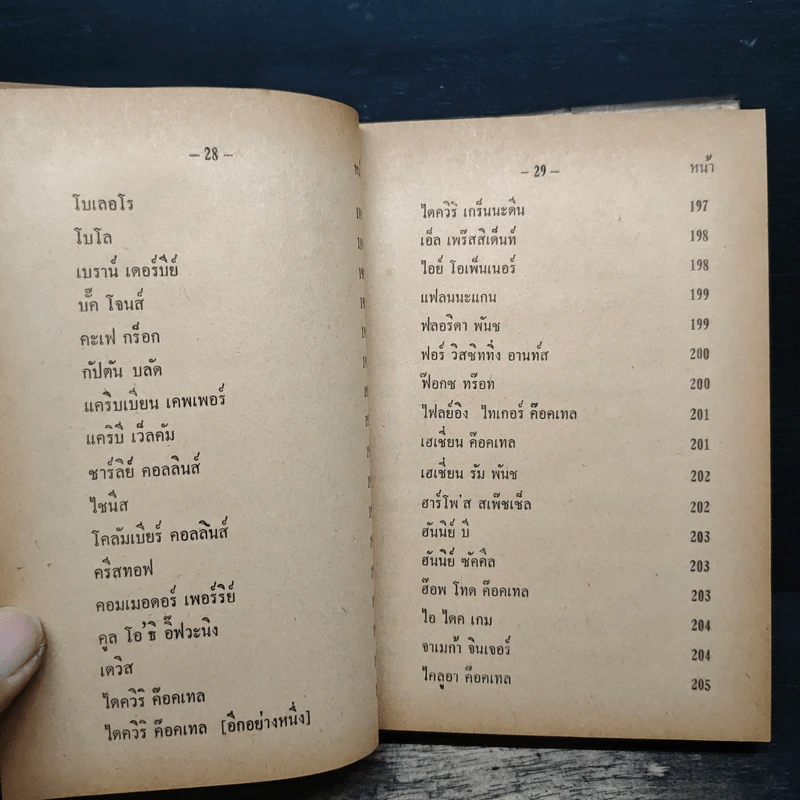 – 28 –
โบเลอโร
โบโล
เบราน์ เดอร์บีย์
บั๊ค โจนส์
คะเฟ กร็อก
กัปตัน บลัด
แคริบเบียน เคพเพอร์
แคริบี เว็ลคัม
ชาร์ลีย์ คอลลินส์
ไชนีส
โคลัมเบียร์ คอลลินส์
คริสทอฟ
คอมเมอดอร์ เพอร์รีย์
คูล โอ'ธิ อิ๊ฟวะนิง
เดวิส
ไดควิริ ค๊อคเทล
ไดควิริ ค๊อคเทล [อีกอย่างหนึ่ง]
– 29 –
หน้า
ไดควิริ เกร็นนะดีน 197
เอ็ล เพร๊สสิเด็นท์ 198
ไอย์ โอเพ็นเนอร์ 198
แฟลนนะแกน 199
ฟลอริดา พันช 199
ฟอร์ วิสซิททิ่ง อานท์ส 200
ฟ๊อกซ ทร๊อท 200
ไฟลย์อิง ไทเกอร์ ค๊อคเทล 201
เฮเชี่ยน ค๊อคเทล 201
เฮเชี่ยน รัม พันช 202
ฮาร์โพ'ส สเพ๊ชเช็ล 202
ฮันนิย์ บี 203
ฮันนิย์ ซัคคึล 203
ฮ๊อพ โทด ค๊อคเทล 203
ไอ ไดค เกม 204
จาเมก้า จินเจอร์ 204
ไคลูอา ค๊อคเทล 205